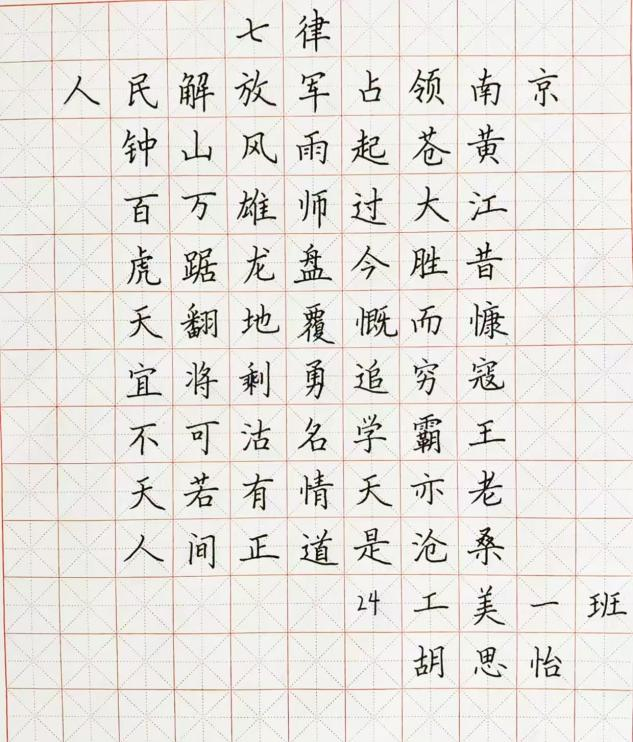 七律
人民解放军占领南京
钟山风雨起苍黄
百万雄师过大江
虎踞龙盘今胜昔
天翻地覆慨而慷
宜将剩勇追穷寇
不可沽名学霸王
天若有情天亦老
人间正道是沧桑
24工美一班
胡思怡